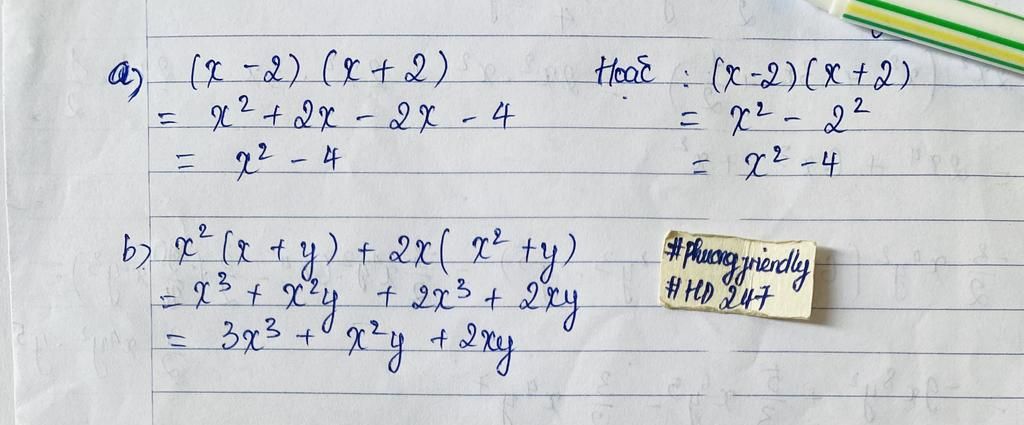 a) (x - 2) (x + 2)
= x² + 2x - 2x - 4
= x² - 4
Hoặc : (x - 2) (x + 2)
= x² - 2²
= x² - 4
b) x² (x + y) + 2x ( x² + y)
= x³ + x²y + 2x³ + 2xy
= 3x³ + x²y + 2xy
#phuongfriendly
#HD 247